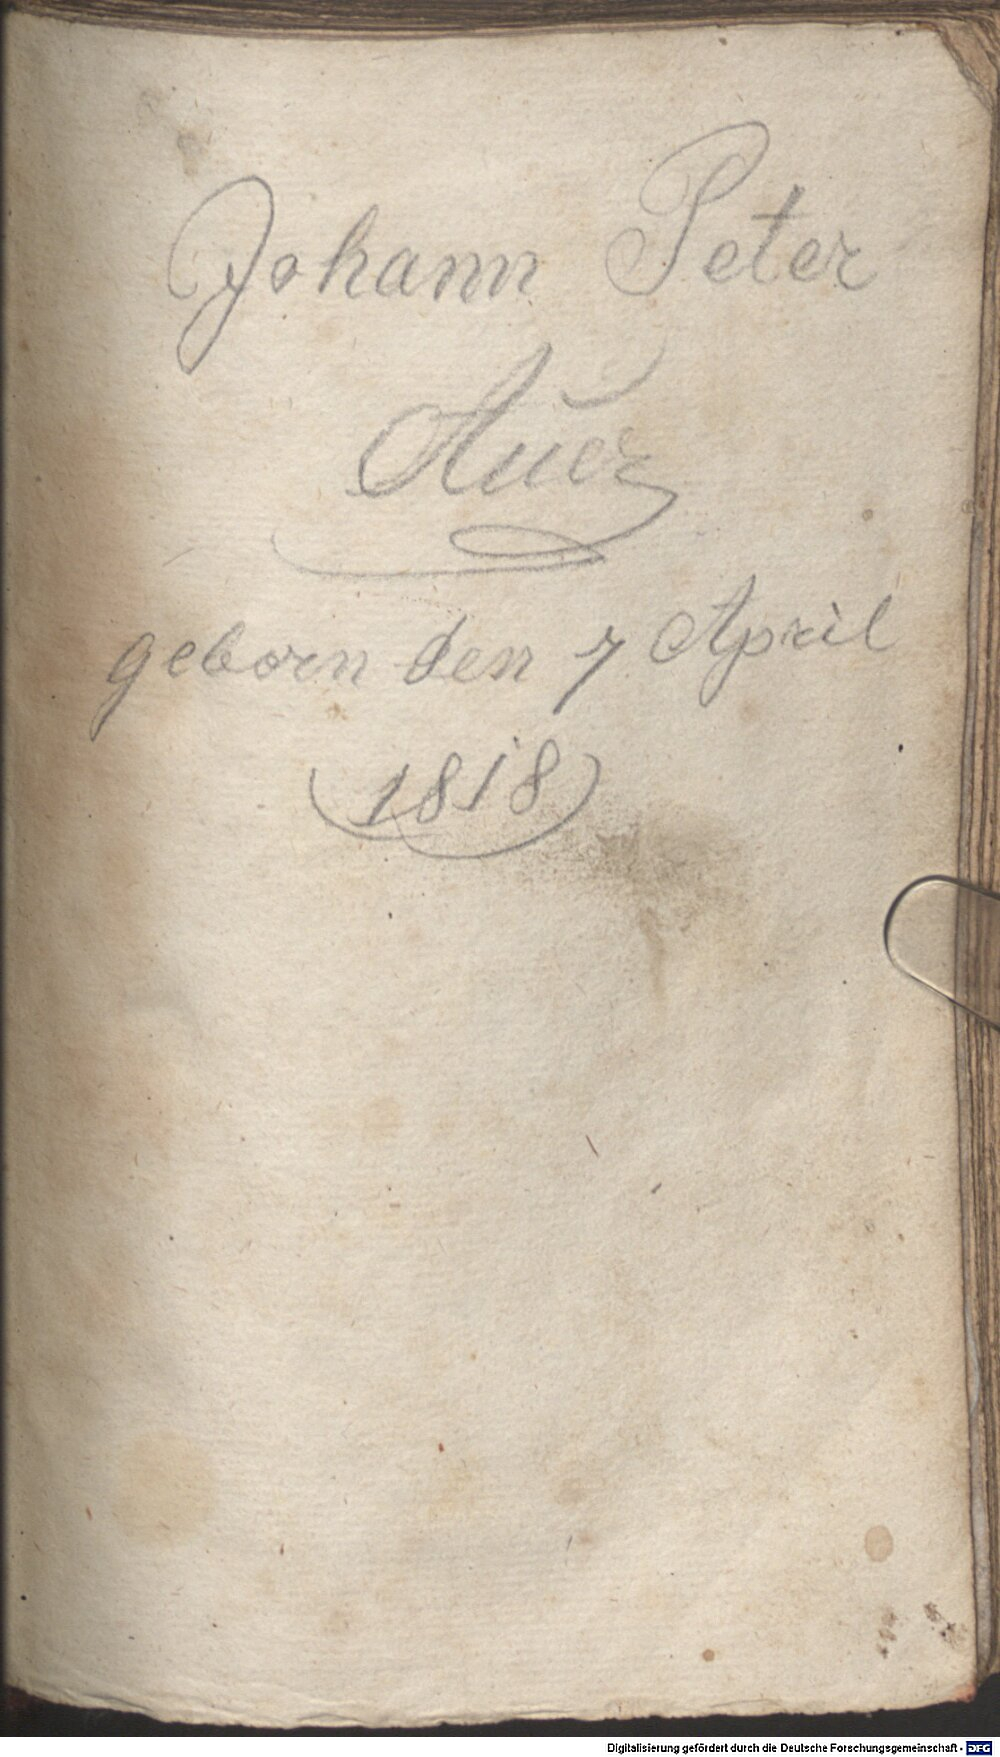 Johann Peter
Auer
geborn den 7 April
1818
Digitalisierung gefördert durch die Deutsche Forschungsgemeinschaft - DFG